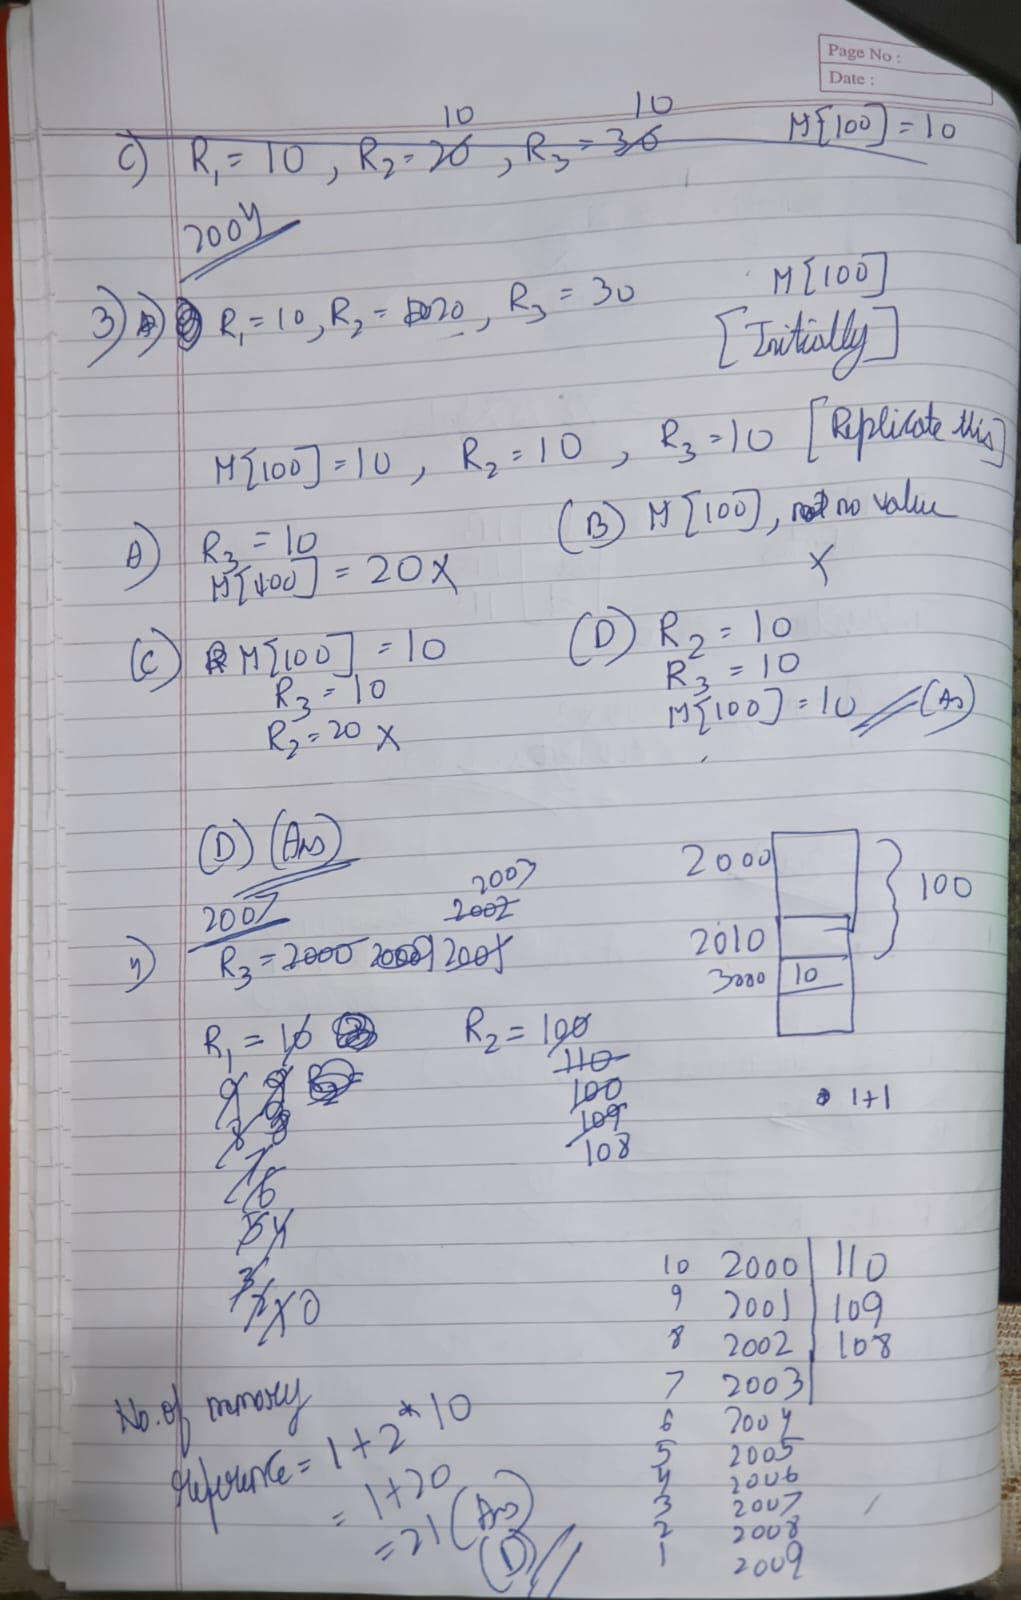 Page No :
Date :
10 10
C) R₁ = 10 , R₂ = 20 , R₃ = 30 M[100] = 10
2004
3) A) R₁ = 10 , R₂ = 20 , R₃ = 30 M[100]
[Initially]
M[100] = 10 , R₂ = 10 , R₃ = 10 [Replicate this]
A) R₃ = 10
M[100] = 20 X
(B) M[100], no value
X
(C) M[100] = 10
R₃ = 10
R₂ = 20 X
(D) R₂ = 10
R₃ = 10
M[100] = 10 (As)
(D) (Ans)
2007
2003
2002
4) R₃ = 2000 2001
2000
2010
3000 10
100
R₁ = 10
9 9
8 8
7
6
5 4
3
2 X 0
R₂ = 100
110
100
109
108
1+1
10 2000 110
9 2001 109
8 2002 108
7 2003
6 2004
5 2005
4 2006
3 2007
2 2008
1 2009
No. of memory
reference = 1 + 2 * 10
= 1 + 20
= 21 (As)
(D)